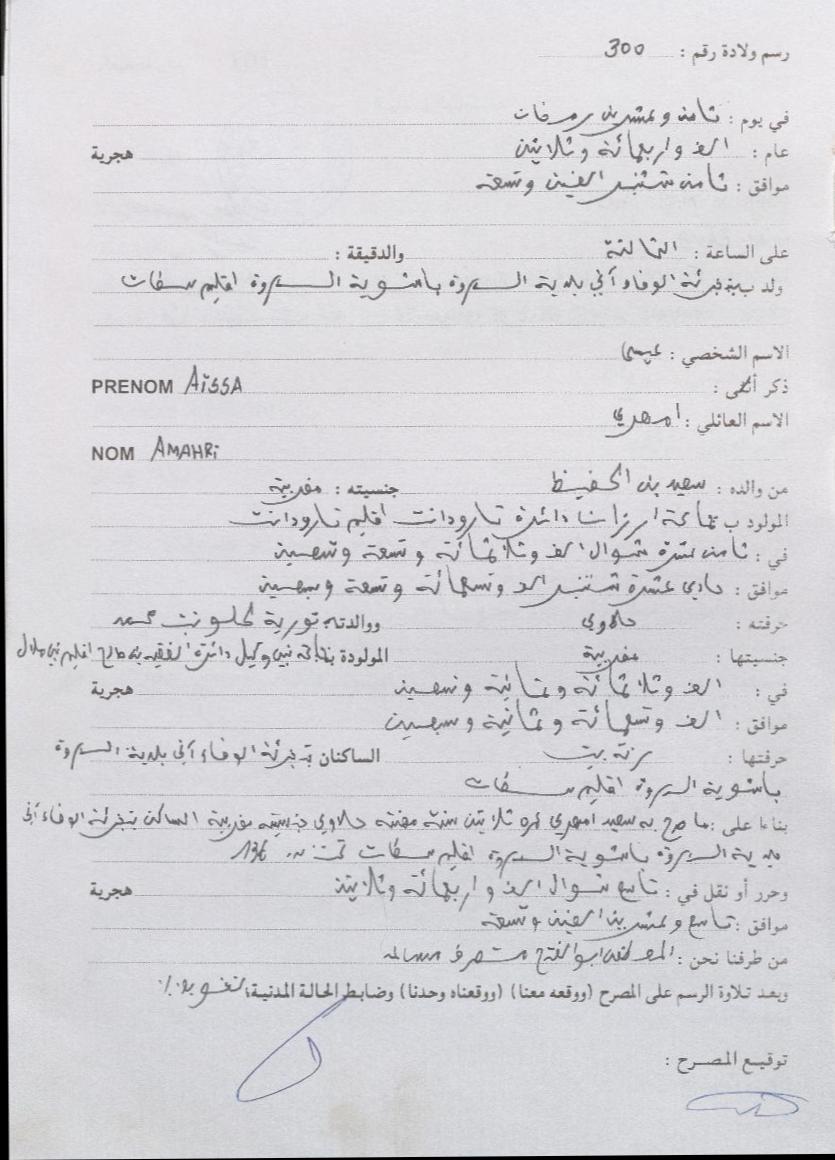 رسم ولادة رقم : 300
في يوم : ثامن وعشرين رمضان
عام : الف واربعمائة وثلاثين هجرية
موافق : ثامن عشر شتنبر الفين وتسعة
على الساعة : الثالثة والدقيقة :
ولد ب بتجزئة الوفاء أني بلدية السروة باشوية السروة اقليم سطات
الاسم الشخصي : عيسى
ذكر أنثى : PRENOM AïSSA
الاسم العائلي : امهري
NOM AMAHRi
من والده : سعيد بن الحفيظ جنسيته : مغربية
المولود ب جماعة دائرة تارودانت اقليم تارودانت
في : ثامن عشرة شوال الف وثلاثمائة وتسعة وتسعين
موافق : حادي عشرة شتنبر الف وتسعمائة وتسعة وسبعين
حرفته : حلاوي ووالدته تورية بنت محمد
جنسيتها : مغربية المولودة ب دائرة الفقيه بن صالح اقليم بني ملال
في : الف وثلاثمائة وثمانية وتسعين هجرية
موافق : الف وتسعمائة وثمانية وسبعين
حرفتها : ربة بيت الساكنان بتجزئة الوفاء أني بلدية السروة
باشوية السروة اقليم سطات
بناءا على : ما صرح به سعيد امهري عمره ثلاثين سنة مهنته حلاوي جنسيته مغربية الساكن بتجزئة الوفاء أني
بلدية السروة باشوية السروة اقليم سطات تحت 136
وحرر أو نقل في : تاسع شوال الف واربعمائة وثلاثين هجرية
موافق : تاسع وعشرين الفين وتسعة
من طرفنا نحن : المصطفى ابو الفتح متصرف
وبعد تلاوة الرسم على المصرح (ووقعه معنا) (ووقعناه وحدنا) وضابط الحالة المدنية؛ بتفويض./.
توقيع المصرح :